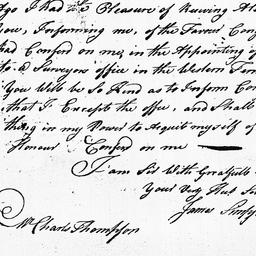 Ago I had the Pleasure of Receiving
you, Informing me, of the Favour
had Conferd on me, in the Appointing
to a Surveyor office in the Western
You Will be So Kind as to Inform
that I Excepts the office, and Shall
thing in my Power to Acquit myself of
Honour Conferd on me
I am Sir With Gratitude
Your Very Hul
James
Mr Charls Thompson